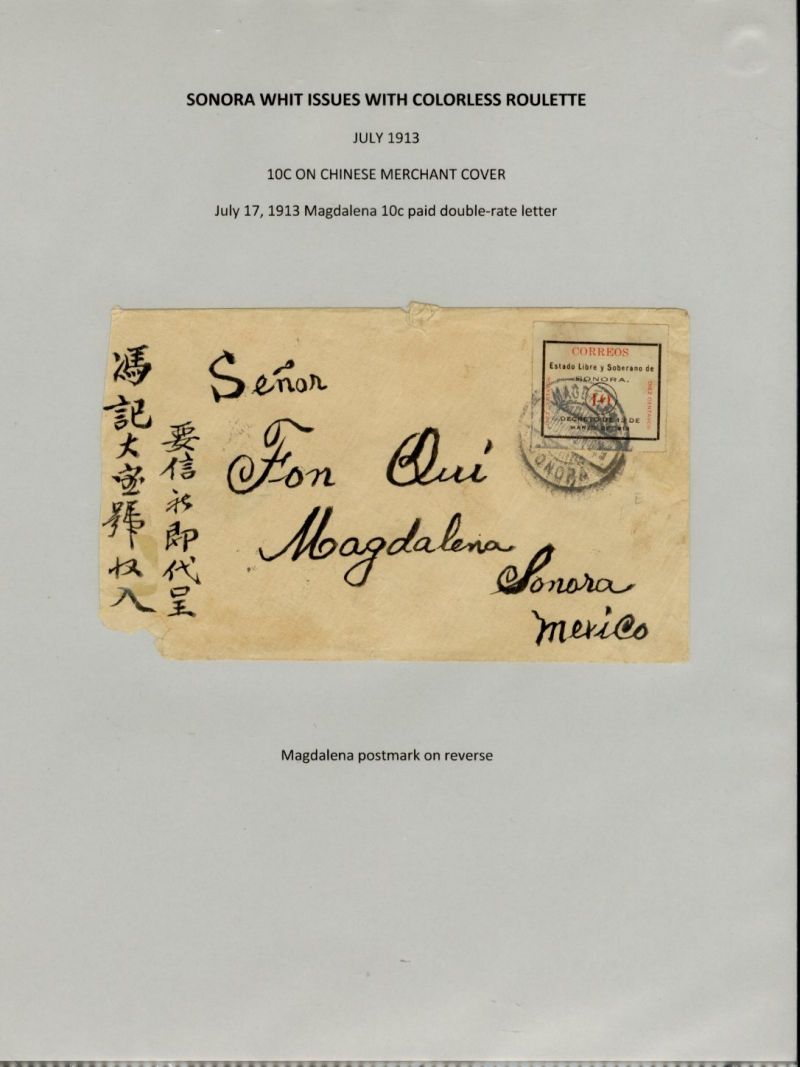 SONORA WHIT ISSUES WITH COLORLESS ROULETTE
JULY 1913
10C ON CHINESE MERCHANT COVER
July 17, 1913 Magdalena 10c paid double-rate letter
馮記大寶號收入
要信祈即代呈
Señor
Fon Qui
Magdalena
Sonora
Mexico
CORREOS
Estado Libre y Soberano de
SONORA.
10
DIEZ CENTAVOS
DECRETO DE 13 DE
MARZO DE 1913
MAGDALENA
SONORA
Magdalena postmark on reverse